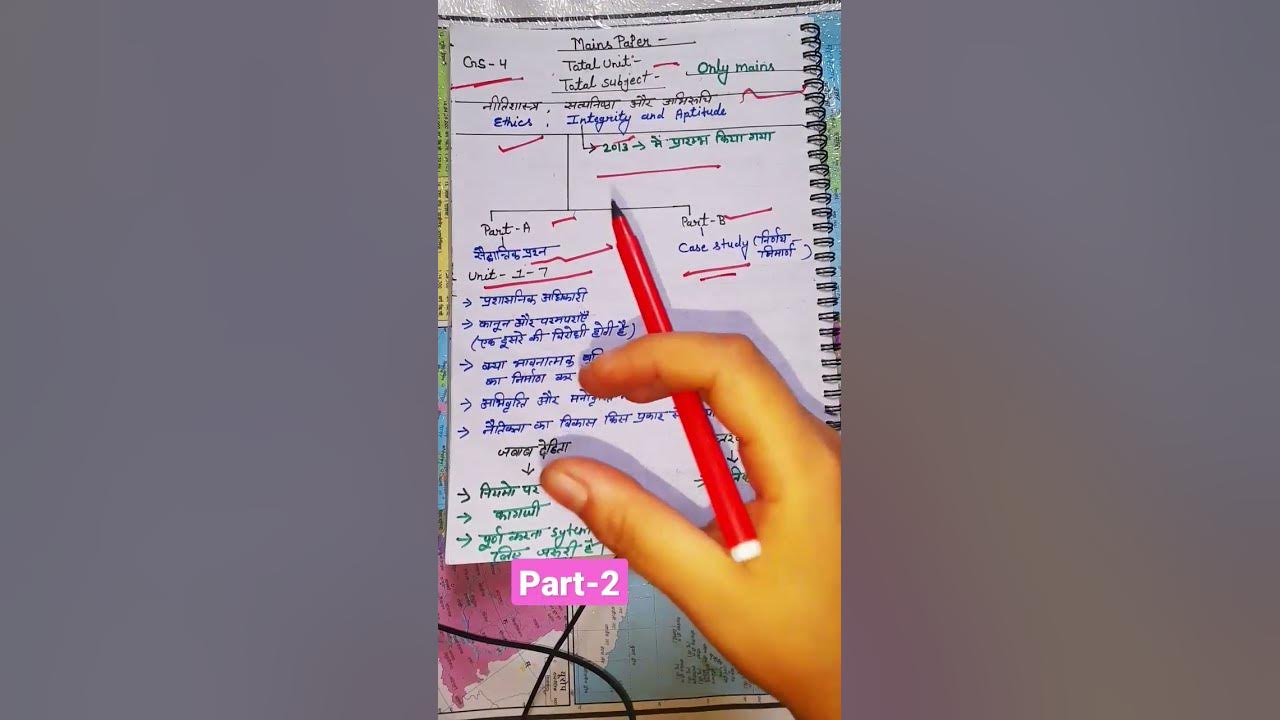 Mains Paper -
GS - 4
Total Unit :-
Total subject -
Only mains
नीतिशास्त्र : सत्यनिष्ठा और अभिरुचि
Ethics : Integrity and Aptitude
2013 → में प्रारम्भ किया गया
Part - A
Part - B
सैद्धान्तिक प्रश्न
Case study (निर्णय
Unit - 1 - 7
→ प्रशासनिक अधिकारी
→ कानून और परम्पराएँ
(एक दूसरे की विरोधी होती है)
→ क्या भावनात्मक
का निर्माण कर
→ अभिवृत्ति और
→ नैतिकता का विकास किस प्रकार
जवाब देहिता
↓
→ नियमो पर
→ कागजी
→ पूर्ण करना sytem
लिए जरूरी है
Part-2
यूरोप